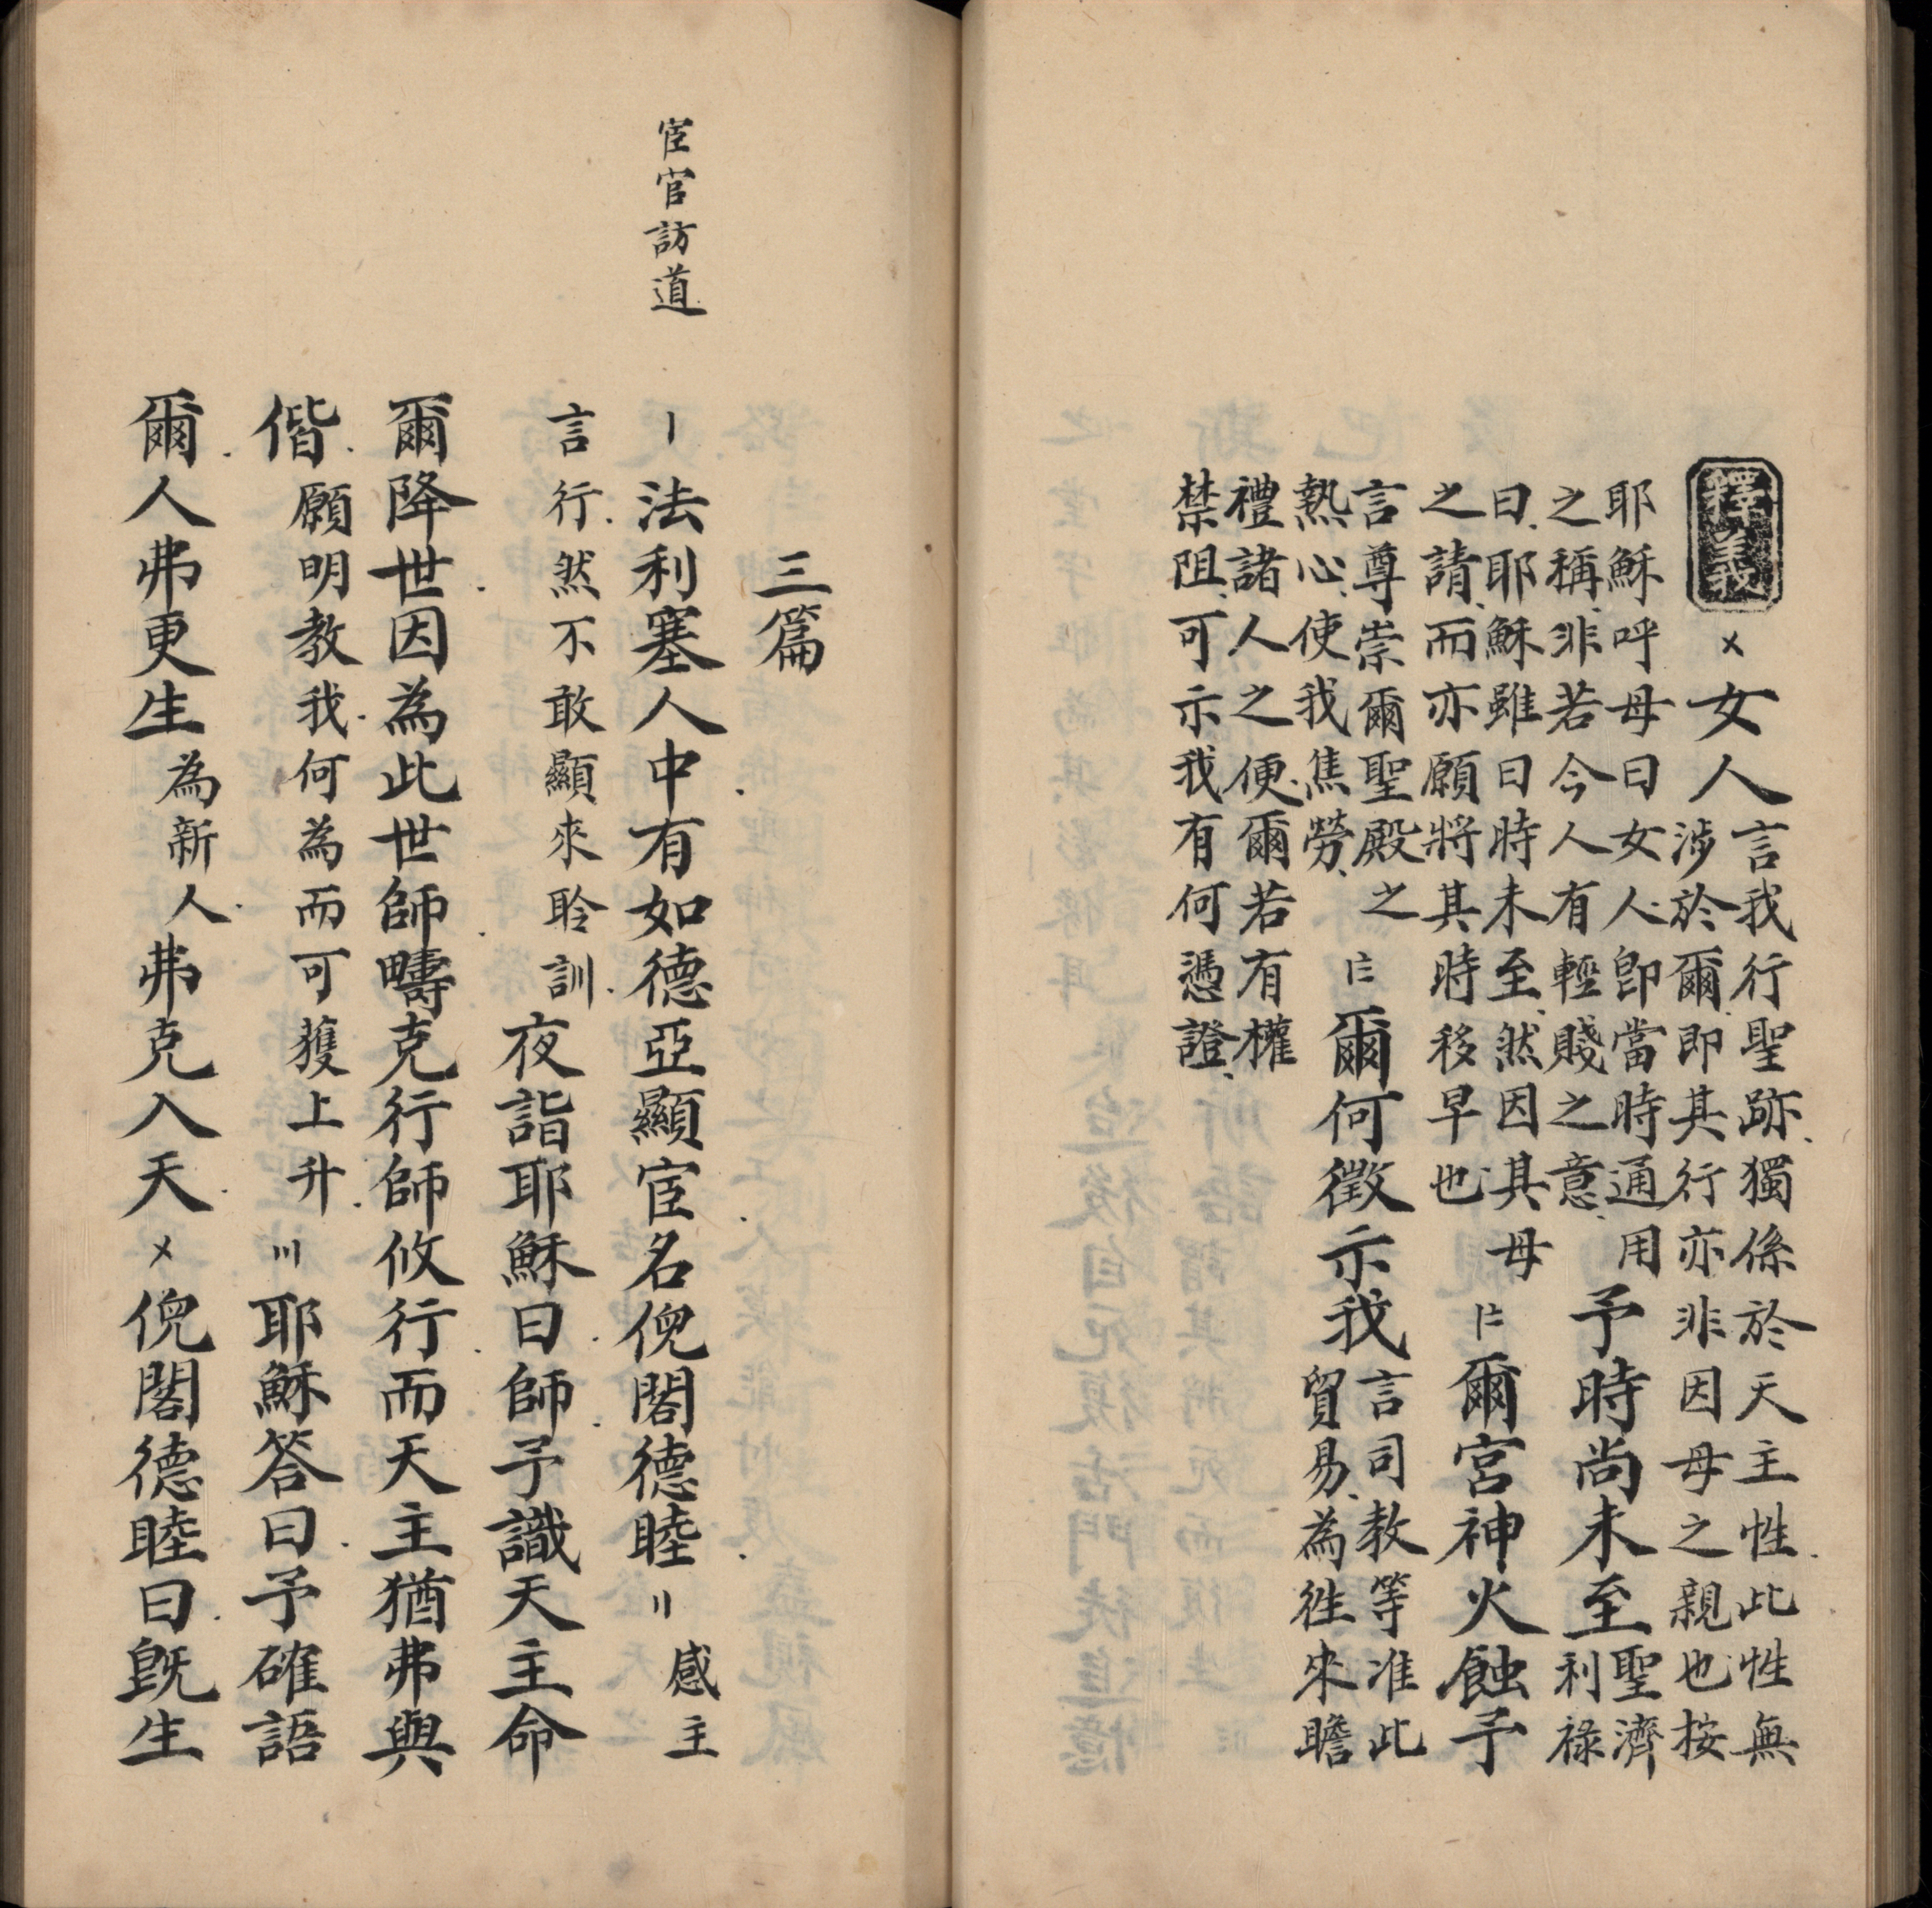 釋義
〤女人言我行聖跡獨係於天主性此性無
涉於爾即其行亦非因母之親也按
耶穌呼母曰女人即當時通用
之稱非若今人有輕賤之意
予時尚未至聖濟
利祿
曰耶穌雖曰時未至然因其母
之請而亦願將其時移早也
爾宮神火蝕予
言尊崇爾聖殿之
熱心使我焦勞
爾何徵示我言司教等准此
貿易為徃來瞻
禮諸人之便爾若有權
禁阻可示我有何憑證
三篇
宦官訪道
〡法利塞人中有如德亞顯宦名倪閣德睦〢感主
言行然不敢顯來聆訓夜詣耶穌曰師予識天主命
爾降世因為此世師疇克行師攸行而天主猶弗與
偕願明教我何為而可獲上升〣耶穌答曰予確語
爾人弗更生為新人弗克入天〤倪閣德睦曰旣生